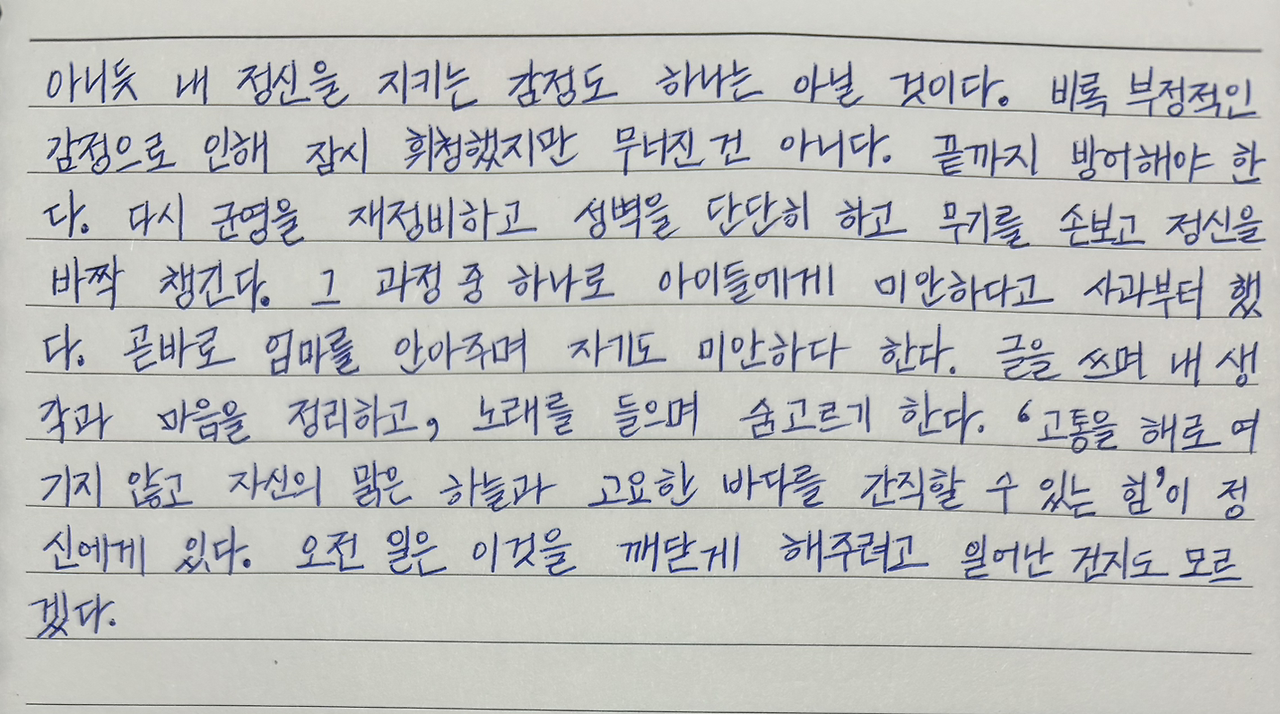 아니듯 내 정신을 지키는 감정도 하나는 아닐 것이다. 비록 부정적인
감정으로 인해 잠시 휘청했지만 무너진 건 아니다. 끝까지 방어해야 한
다. 다시 군영을 재정비하고 성벽을 단단히 하고 무기를 손보고 정신을
바짝 챙긴다. 그 과정 중 하나로 아이들에게 미안하다고 사과부터 했
다. 곧바로 엄마를 안아주며 자기도 미안하다 한다. 글을 쓰며 내 생
각과 마음을 정리하고, 노래를 들으며 숨고르기 한다. ‘고통을 해로 여
기지 않고 자신의 맑은 하늘과 고요한 바다를 간직할 수 있는 힘’이 정
신에게 있다. 오전 일은 이것을 깨닫게 해주려고 일어난 건지도 모르
겠다.